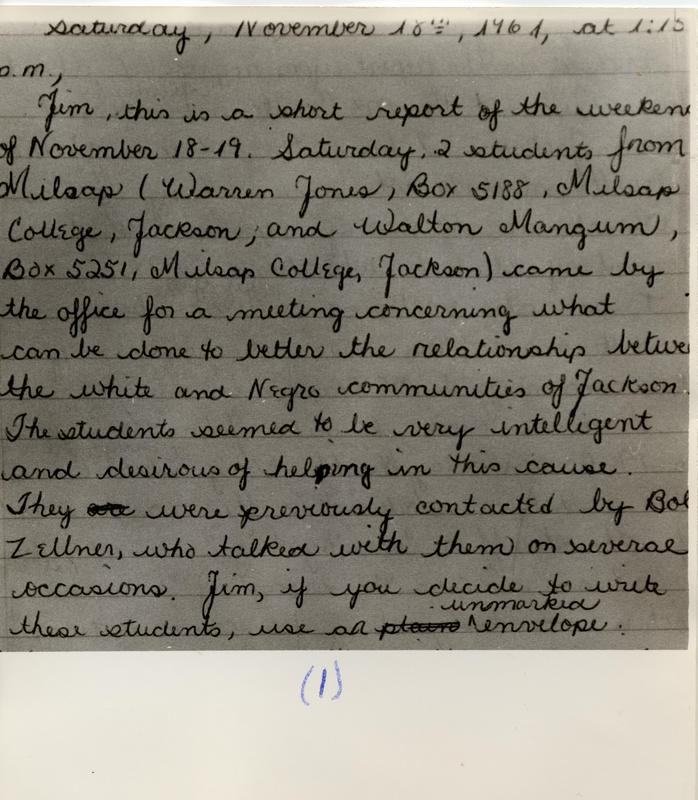 Saturday, November 18th, 1961, at 1:15
p.m.,
Jim, this is a short report of the weeken
of November 18-19. Saturday, 2 students from
Milsap (Warren Jones, Box 5188, Milsap
College, Jackson; and Walton Mangum,
Box 5251, Milsap College, Jackson) came by
the office for a meeting concerning what
can be done to better the relationship betwe
the white and Negro communities of Jackson.
The students seemed to be very intelligent
and desirous of helping in this cause.
They were previously contacted by Bob
Zellner, who talked with them on several
occasions. Jim, if you decide to write
unmarked
these students, use an plain envelope.
(1)